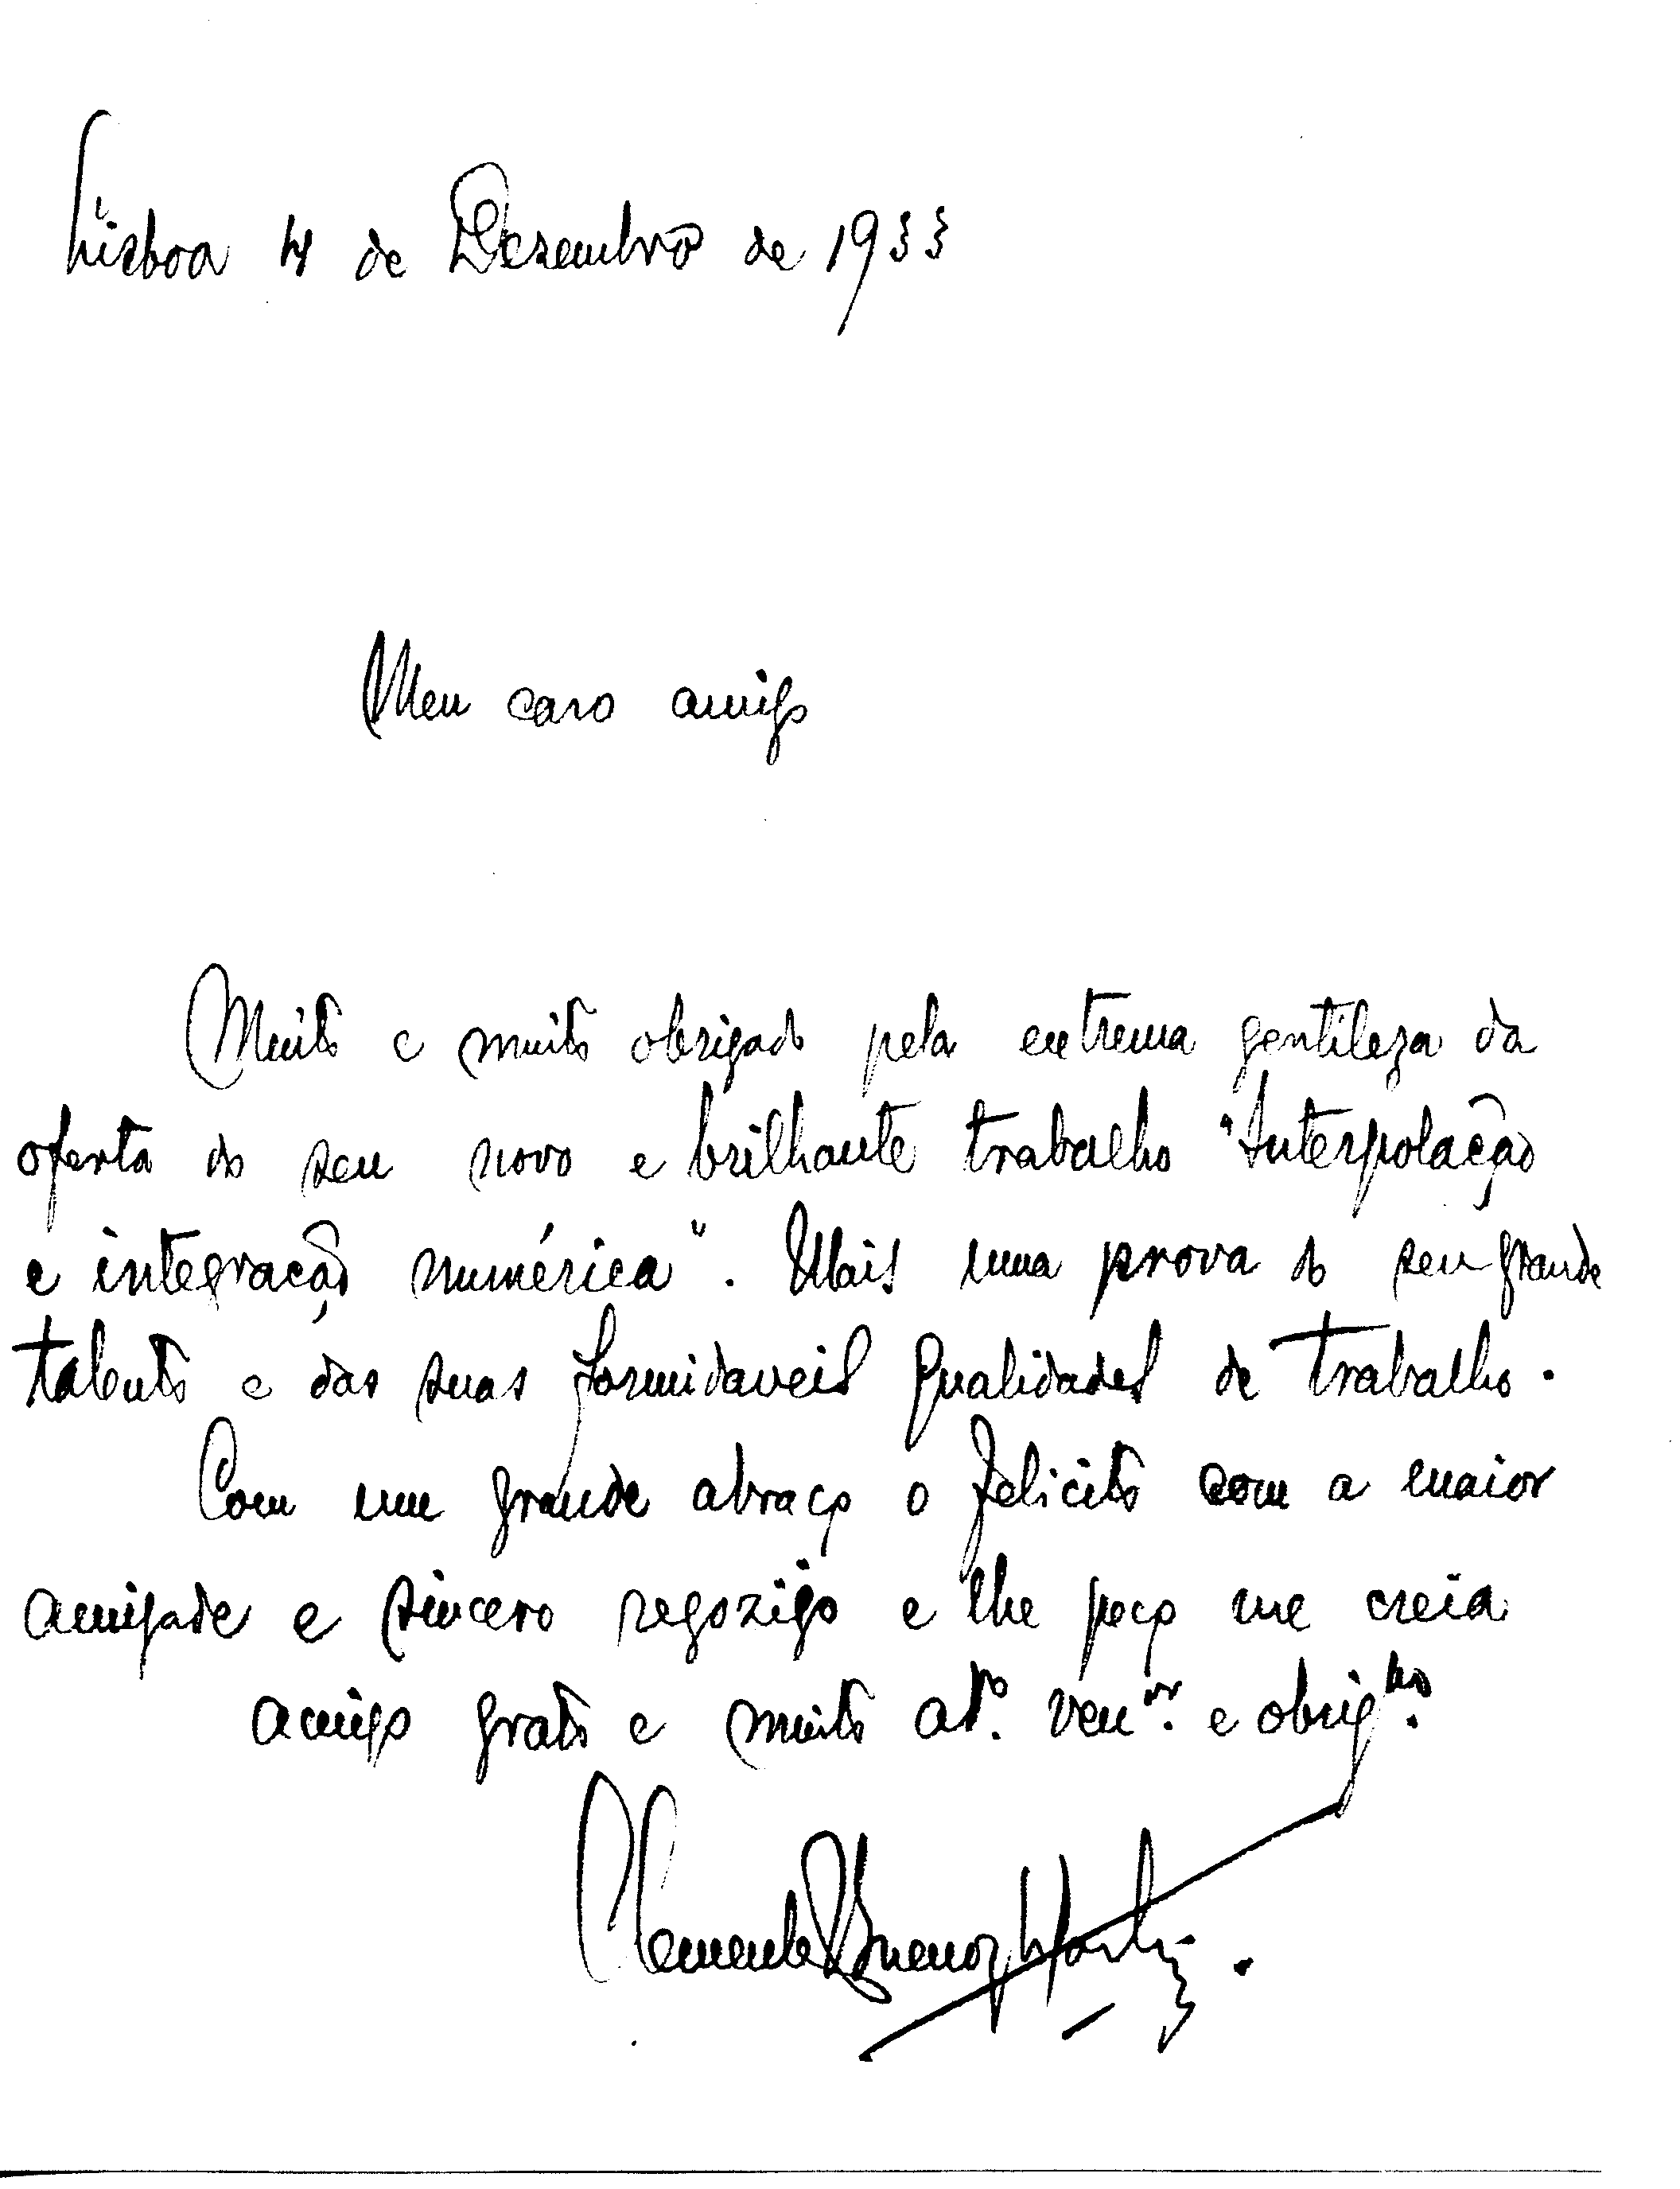 Lisboa 4 de Dezembro de 1933
Meu caro amigo
Muito e muito obrigado pela extrema gentileza da
oferta do seu novo e brilhante trabalho "Interpolação
e integração numérica". Mais uma prova do seu grande
talento e das suas formidaveis qualidades de trabalho.
Com um grande abraço o felicito com a maior
amizade e sincero regozijo e lhe peço me creia
amigo grato e muito at.º ven.or e obrig.mo
Clemente